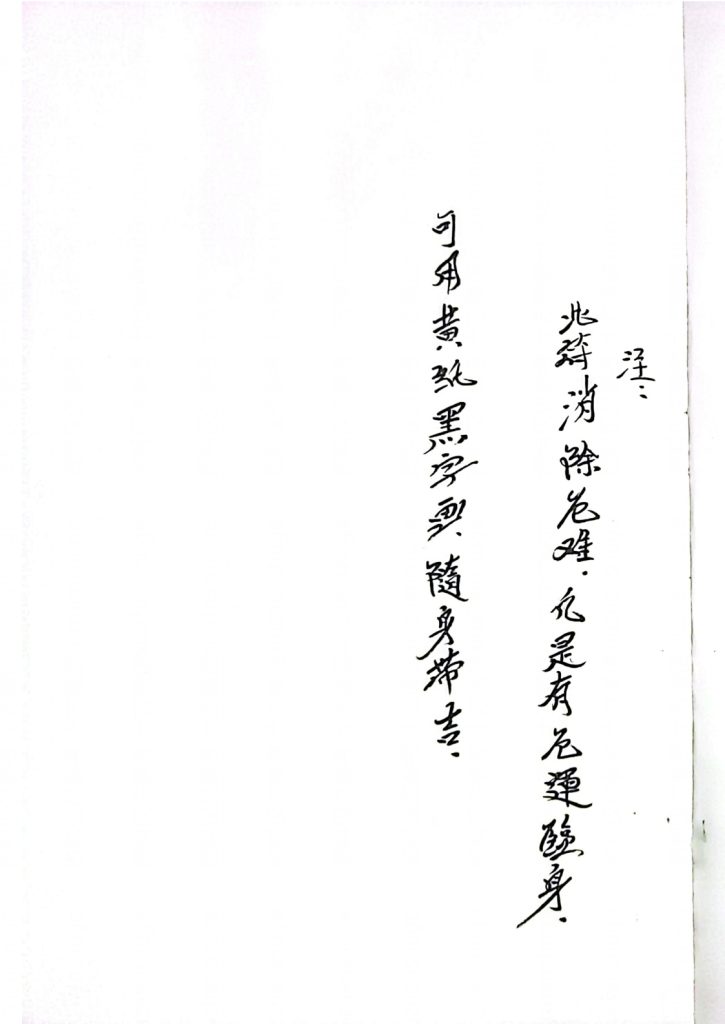 注：
此符消除危难．凡是有危運臨身．
可用黃紙黑字画．隨身带吉．